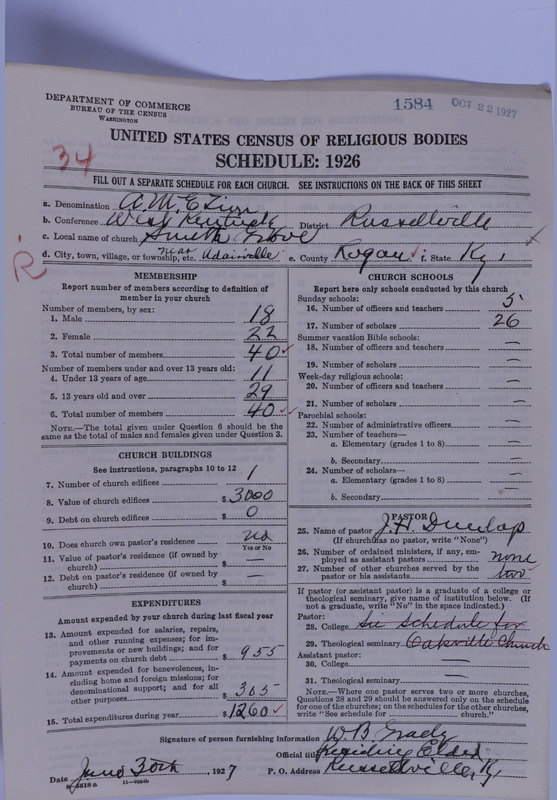 DEPARTMENT OF COMMERCE
BUREAU OF THE CENSUS
WASHINGTON
1584 OCT 22 1927
UNITED STATES CENSUS OF RELIGIOUS BODIES
SCHEDULE: 1926
34
FILL OUT A SEPARATE SCHEDULE FOR EACH CHURCH. SEE INSTRUCTIONS ON THE BACK OF THIS SHEET
a. Denomination A.M.E. Zion
b. Conference West Kentucky District Russellville
c. Local name of church Smith Grove
d. City, town, village, or township, etc. near Adairville e. County Logan f. State Ky,
R
MEMBERSHIP
Report number of members according to definition of
member in your church
Number of members, by sex:
1. Male 18
2. Female 22
3. Total number of members 40
Number of members under and over 13 years old:
4. Under 13 years of age 11
5. 13 years old and over 29
6. Total number of members 40
NOTE.—The total given under Question 6 should be
the same as the total of males and females given under Question 3.
CHURCH BUILDINGS
See instructions, paragraphs 10 to 12
7. Number of church edifices 1
8. Value of church edifices $ 3000
9. Debt on church edifices $ 0
10. Does church own pastor's residence? no
Yes or No
11. Value of pastor's residence (if owned by
church) $ —
12. Debt on pastor's residence (if owned by
church) $ —
EXPENDITURES
Amount expended by your church during last fiscal year
13. Amount expended for salaries, repairs,
and other running expenses; for im-
provements or new buildings; and for
payments on church debt $ 955
14. Amount expended for benevolences, in-
cluding home and foreign missions; for
denominational support; and for all
other purposes $ 305
15. Total expenditures during year $ 1260
CHURCH SCHOOLS
Report here only schools conducted by this church
Sunday schools:
16. Number of officers and teachers 5
17. Number of scholars 26
Summer vacation Bible schools:
18. Number of officers and teachers —
19. Number of scholars —
Week-day religious schools:
20. Number of officers and teachers —
21. Number of scholars —
Parochial schools:
22. Number of administrative officers —
23. Number of teachers—
a. Elementary (grades 1 to 8) —
b. Secondary —
24. Number of scholars—
a. Elementary (grades 1 to 8) —
b. Secondary —
PASTOR
25. Name of pastor J.H. Dunlap
(If church has no pastor, write "None")
26. Number of ordained ministers, if any, em-
ployed as assistant pastors none
27. Number of other churches served by the
pastor or his assistants two
If pastor (or assistant pastor) is a graduate of a college or
theological seminary, give name of institution below. (If
not a graduate, write "No" in the space indicated.)
Pastor:
28. College See Schedule for
29. Theological seminary Oakville Church
Assistant pastor:
30. College —
31. Theological seminary —
NOTE.—Where one pastor serves two or more churches,
Questions 28 and 29 should be answered only on the schedule
for one of the churches; on the schedules for the other churches,
write "See schedule for church."
Signature of person furnishing information W.B. Grady
Official title Presiding Elder
Date June 30th, 1927 P. O. Address Russellville, Ky